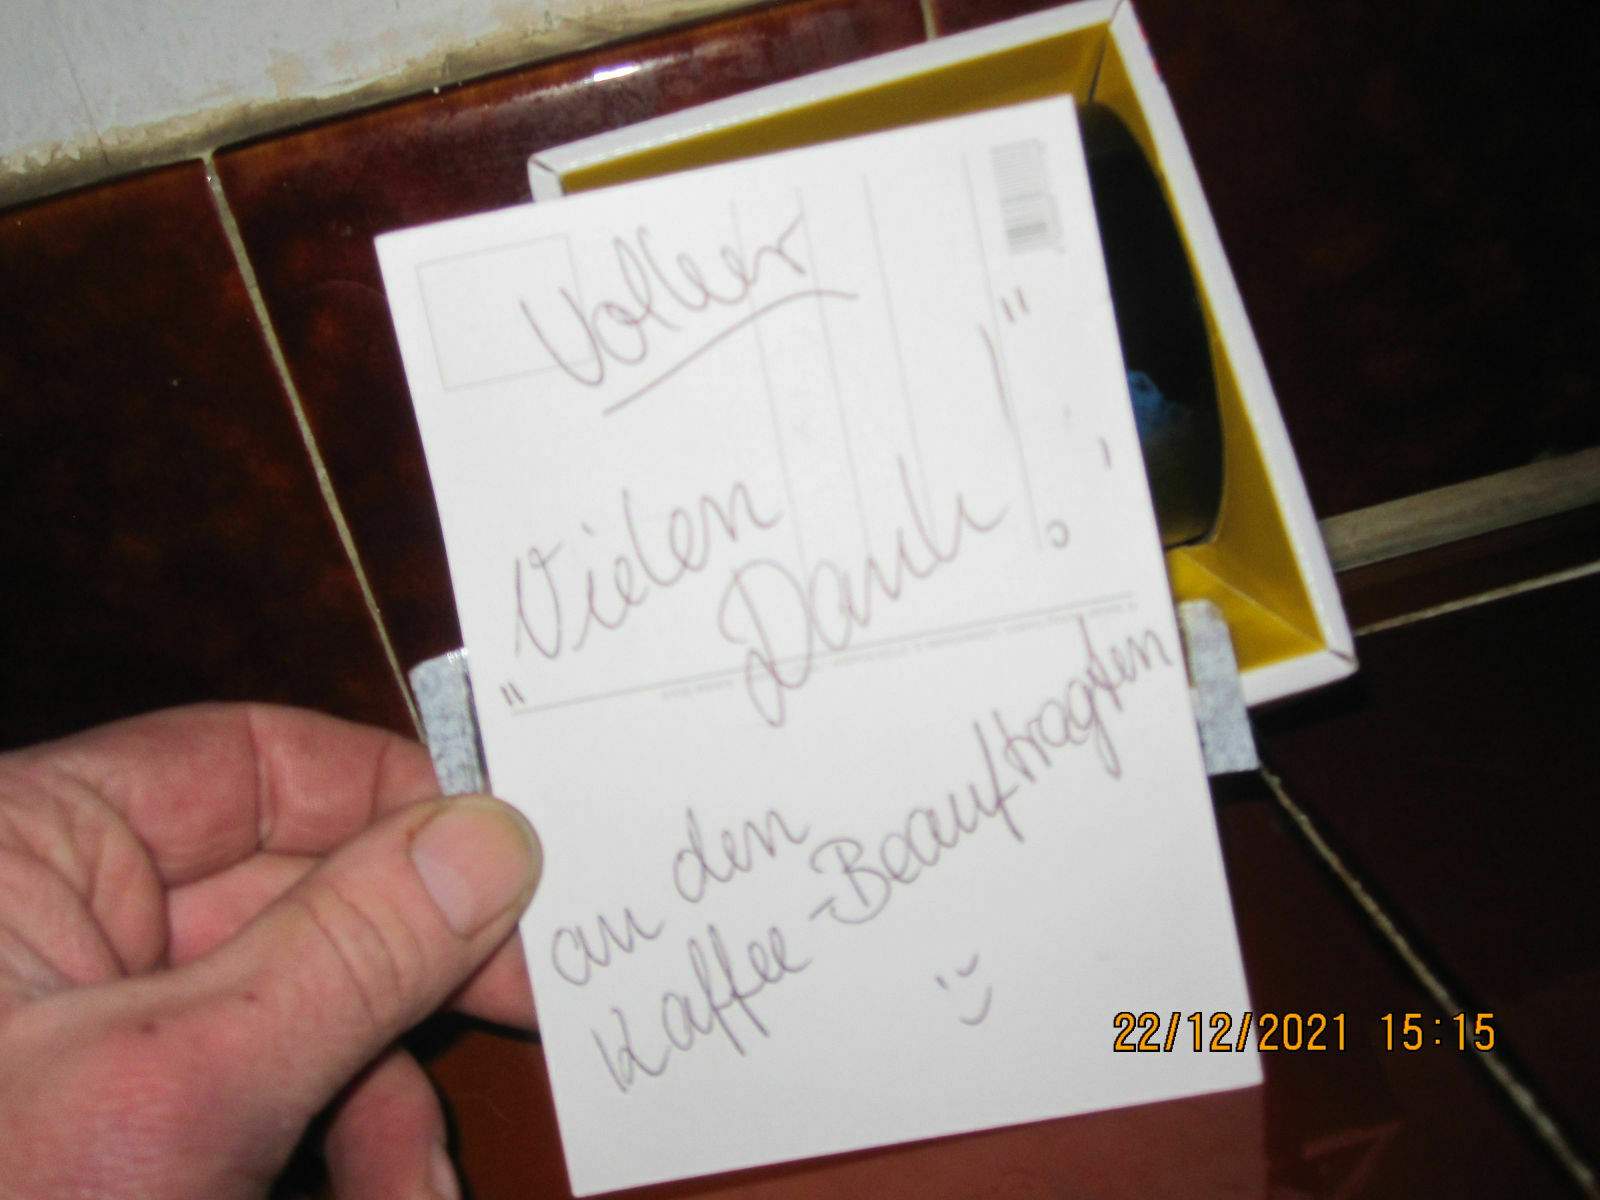 Volker
"Vielen
Dank!"
an den
Kaffee-Beauftragten
:-)
22/12/2021 15:15